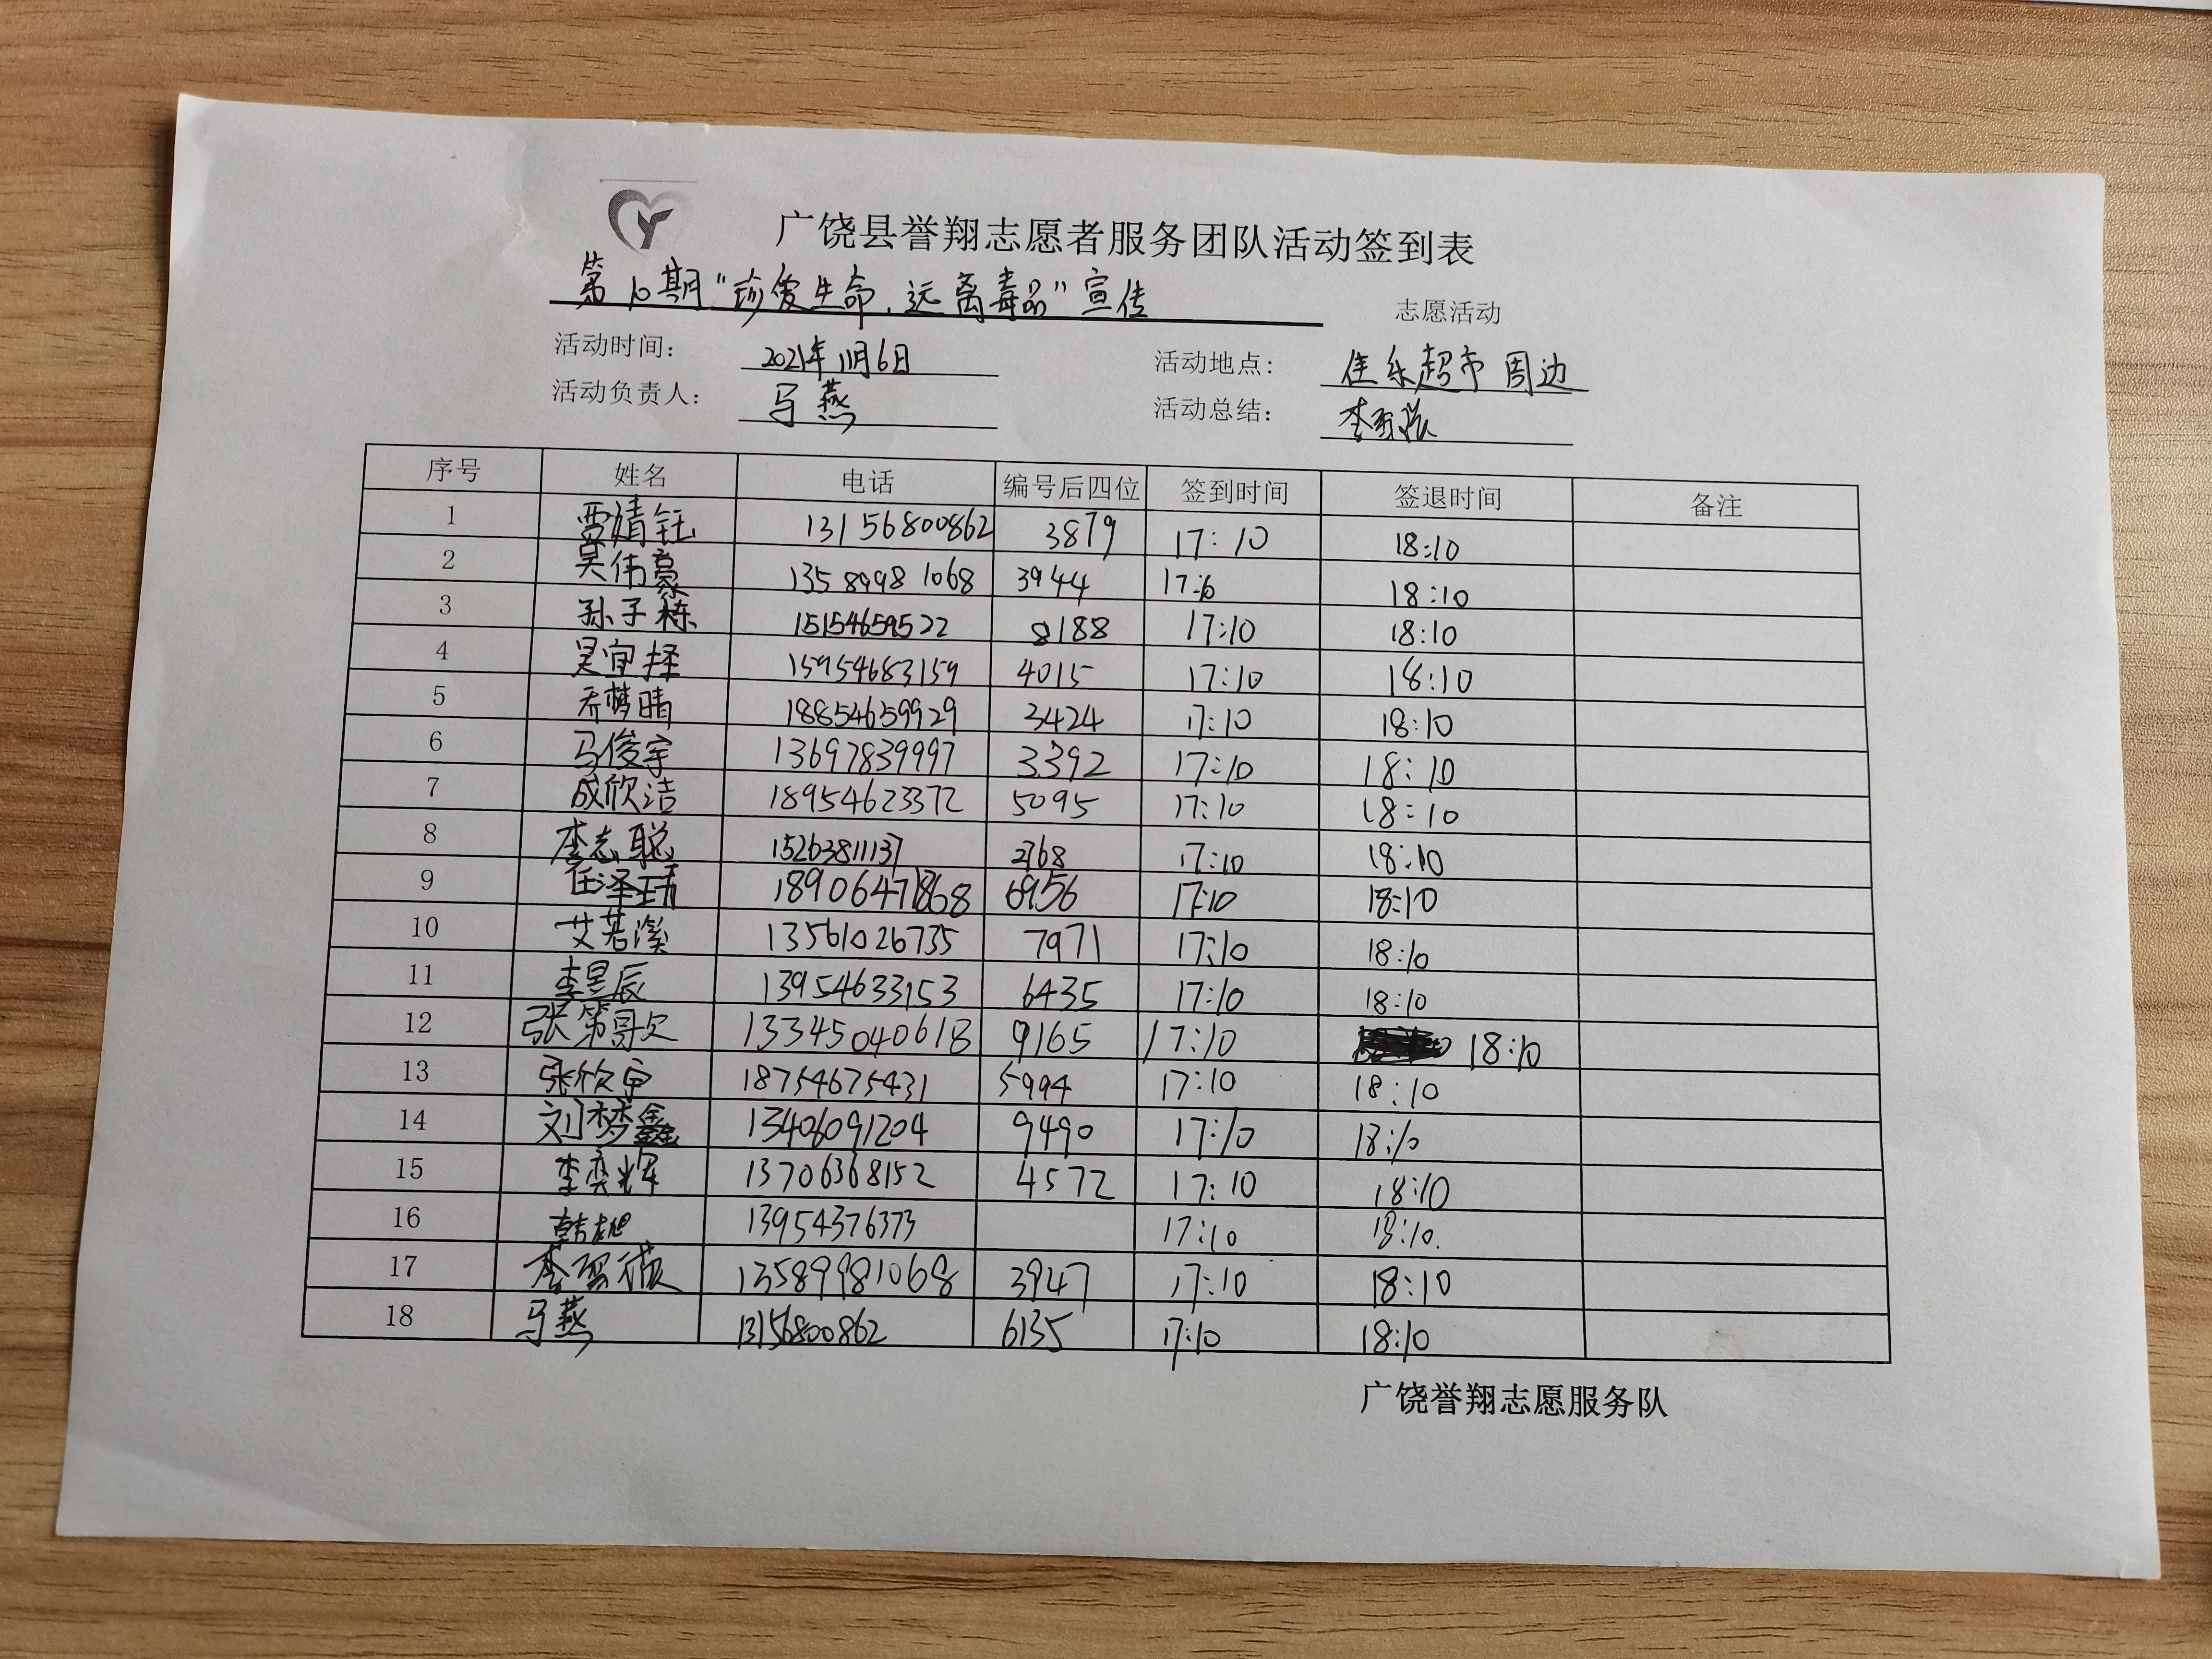 广饶县誉翔志愿者服务团队活动签到表
第10期“珍爱生命,远离毒品”宣传 志愿活动
活动时间: 2021年11月6日 活动地点: 佳乐超市周边
活动负责人: 马燕 活动总结: 李
序号 姓名 电话 编号后四位 签到时间 签退时间 备注
1 贾婧钰 13156800862 3879 17:10 18:10
2 吴伟豪 13589981068 3944 17:10 18:10
3 孙子栋 15154659522 8188 17:10 18:10
4 吴宜择 15954683159 4015 17:10 18:10
5 乔梦晴 18854659929 3424 17:10 18:10
6 马俊宇 13697839997 3392 17:10 18:10
7 成欣洁 18954623372 5095 17:10 18:10
8 李志聪 15263811137 2768 17:10 18:10
9 任泽 18906471868 6956 17:10 18:10
10 艾若溪 13561026735 7971 17:10 18:10
11 李昱辰 13954633153 6435 17:10 18:10
12 张筹歌 13345040618 9165 17:10 18:10
13 张欣 18754675431 5994 17:10 18:10
14 刘梦鑫 13406091204 9490 17:10 18:10
15 李奕辉 13706368152 4572 17:10 18:10
16 韩旭 13954376373 17:10 18:10
17 李 薇 13589981068 3947 17:10 18:10
18 马燕 13156800862 6135 17:10 18:10
广饶誉翔志愿服务队